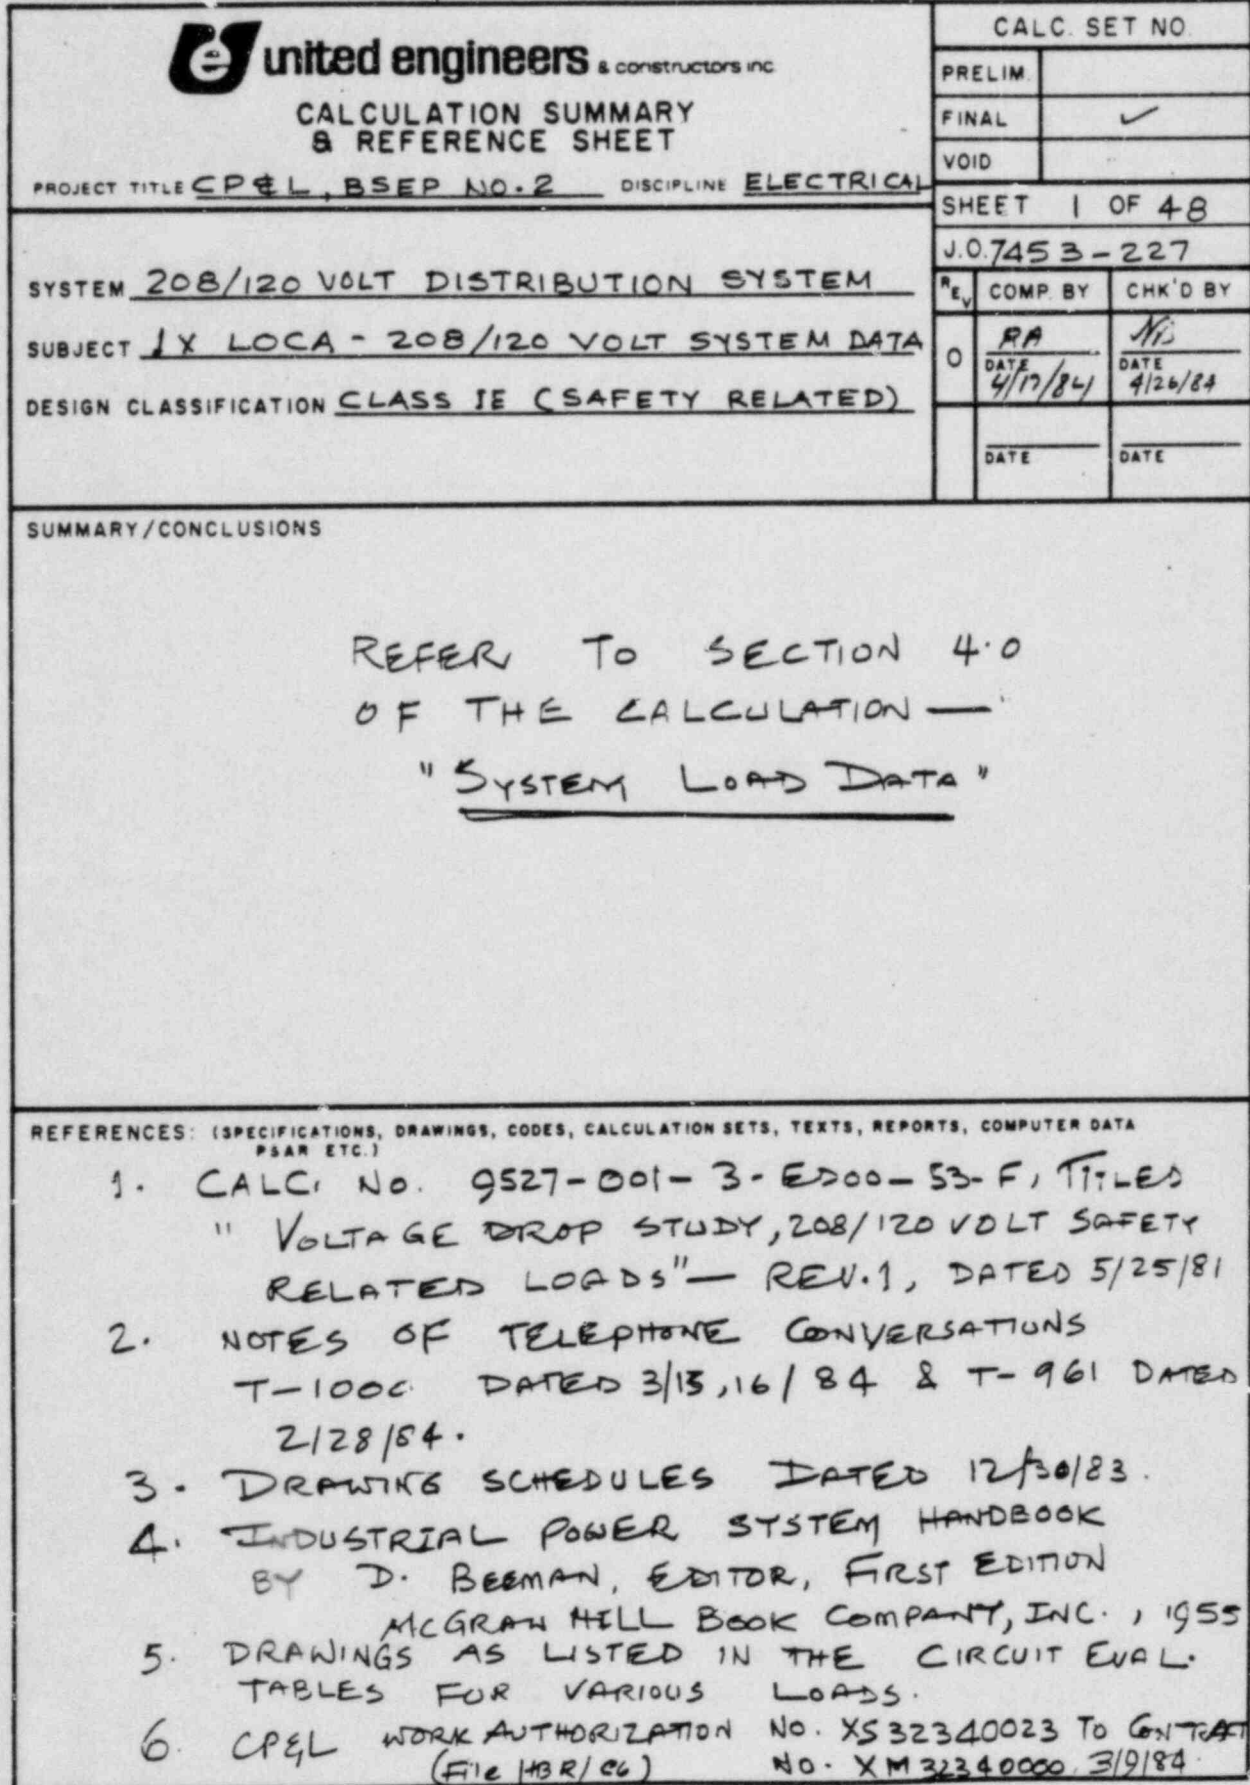 united engineers & constructors inc
CALCULATION SUMMARY
& REFERENCE SHEET
PROJECT TITLE CP&L, BSEP NO.2 DISCIPLINE ELECTRICAL
CALC. SET NO.
PRELIM.
FINAL ✓
VOID
SHEET 1 OF 48
J.O. 7453-227
SYSTEM 208/120 VOLT DISTRIBUTION SYSTEM
SUBJECT 1X LOCA - 208/120 VOLT SYSTEM DATA
DESIGN CLASSIFICATION CLASS IE (SAFETY RELATED)
REV COMP. BY CHK'D BY
0 RA
DATE DATE
4/17/84 4/26/84
DATE DATE
SUMMARY/CONCLUSIONS
REFER TO SECTION 4.0
OF THE CALCULATION —
"SYSTEM LOAD DATA"
REFERENCES: (SPECIFICATIONS, DRAWINGS, CODES, CALCULATION SETS, TEXTS, REPORTS, COMPUTER DATA
PSAR ETC.)
1. CALC. NO. 9527-001-3-ED00-53-F, TITLED
"VOLTAGE DROP STUDY, 208/120 VOLT SAFETY
RELATED LOADS" — REV.1, DATED 5/25/81
2. NOTES OF TELEPHONE CONVERSATIONS
DATED 3/15,16/84 & T-961 DATED
2/28/84.
3. DRAWING SCHEDULES DATED 12/30/83.
4. INDUSTRIAL POWER SYSTEM HANDBOOK
BY D. BEEMAN, EDITOR, FIRST EDITION
MCGRAW HILL BOOK COMPANY, INC., 1955
5. DRAWINGS AS LISTED IN THE CIRCUIT EVAL.
TABLES FOR VARIOUS LOADS.
6. CP&L WORK AUTHORIZATION NO. XS32340023 TO CONTRACT
(File HBR/C6) NO. XM32340000, 3/9/84.